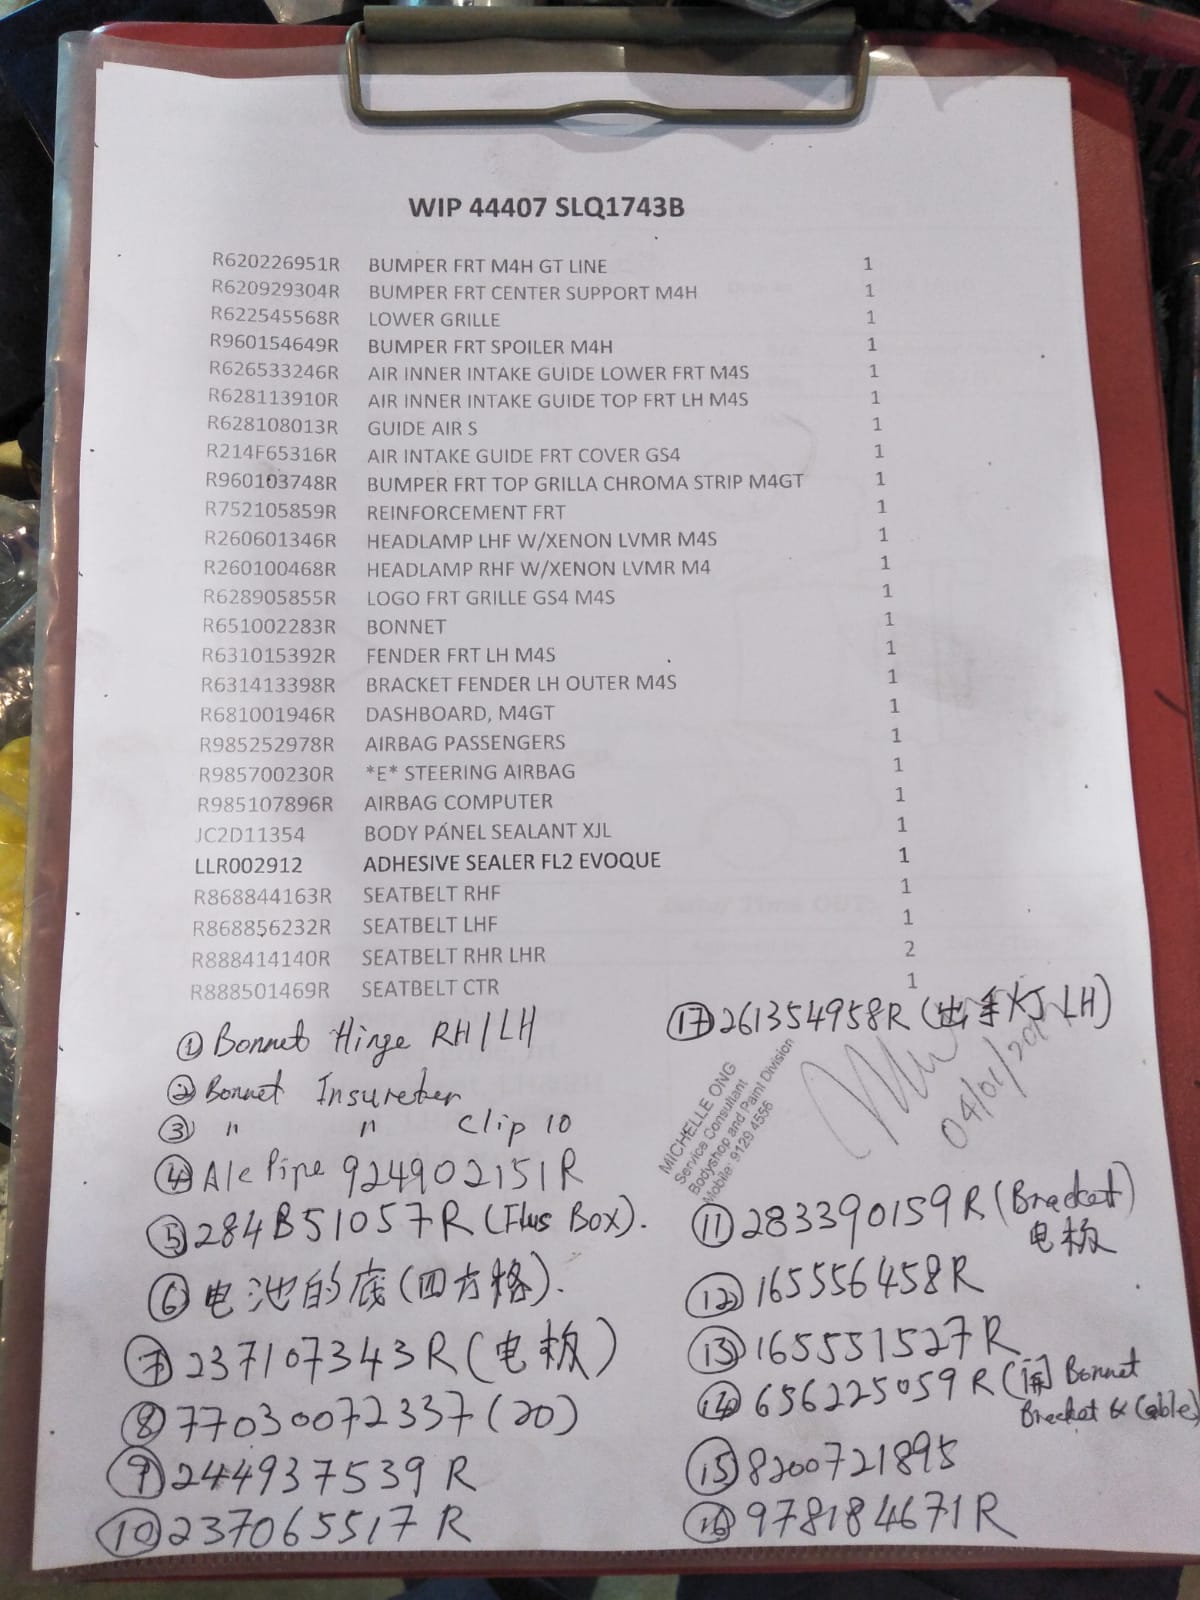 WIP 44407 SLQ1743B
R620226951R BUMPER FRT M4H GT LINE 1
R620929304R BUMPER FRT CENTER SUPPORT M4H 1
R622545568R LOWER GRILLE 1
R960154649R BUMPER FRT SPOILER M4H 1
R626533246R AIR INNER INTAKE GUIDE LOWER FRT M4S 1
R628113910R AIR INNER INTAKE GUIDE TOP FRT LH M4S 1
R628108013R GUIDE AIR S 1
R214F65316R AIR INTAKE GUIDE FRT COVER GS4 1
R960103748R BUMPER FRT TOP GRILLA CHROMA STRIP M4GT 1
R752105859R REINFORCEMENT FRT 1
R260601346R HEADLAMP LHF W/XENON LVMR M4S 1
R260100468R HEADLAMP RHF W/XENON LVMR M4 1
R628905855R LOGO FRT GRILLE GS4 M4S 1
R651002283R BONNET 1
R631015392R FENDER FRT LH M4S 1
R631413398R BRACKET FENDER LH OUTER M4S 1
R681001946R DASHBOARD, M4GT 1
R985252978R AIRBAG PASSENGERS 1
R985700230R *E* STEERING AIRBAG 1
R985107896R AIRBAG COMPUTER 1
JC2D11354 BODY PANEL SEALANT XJL 1
LLR002912 ADHESIVE SEALER FL2 EVOQUE 1
R868844163R SEATBELT RHF 1
R868856232R SEATBELT LHF 1
R888414140R SEATBELT RHR LHR 2
R888501469R SEATBELT CTR 1
① Bonnet Hinge RH/LH
② Bonnet Insureter
③ " " Clip 10
④ A/c Pipe 924902151R
⑤ 284B51057R (Fus Box).
⑥ 电池的底(四方格).
⑦ 237107343R (电板)
⑧ 77030072337 (20)
⑨ 244937539R
⑩ 237065517R
⑰ 261354958R (出手灯 LH)
04/01/20
MICHELLE ONG
Service Consultant
Bodyshop and Paint Division
Mobile: 9129 4556
⑪ 283390159R (Bracket)
电板
⑫ 165556458R
⑬ 165551527R
⑭ 656225059R ( Bonnet
Bracket & Cable)
⑮ 8200721895
⑯ 978184671R